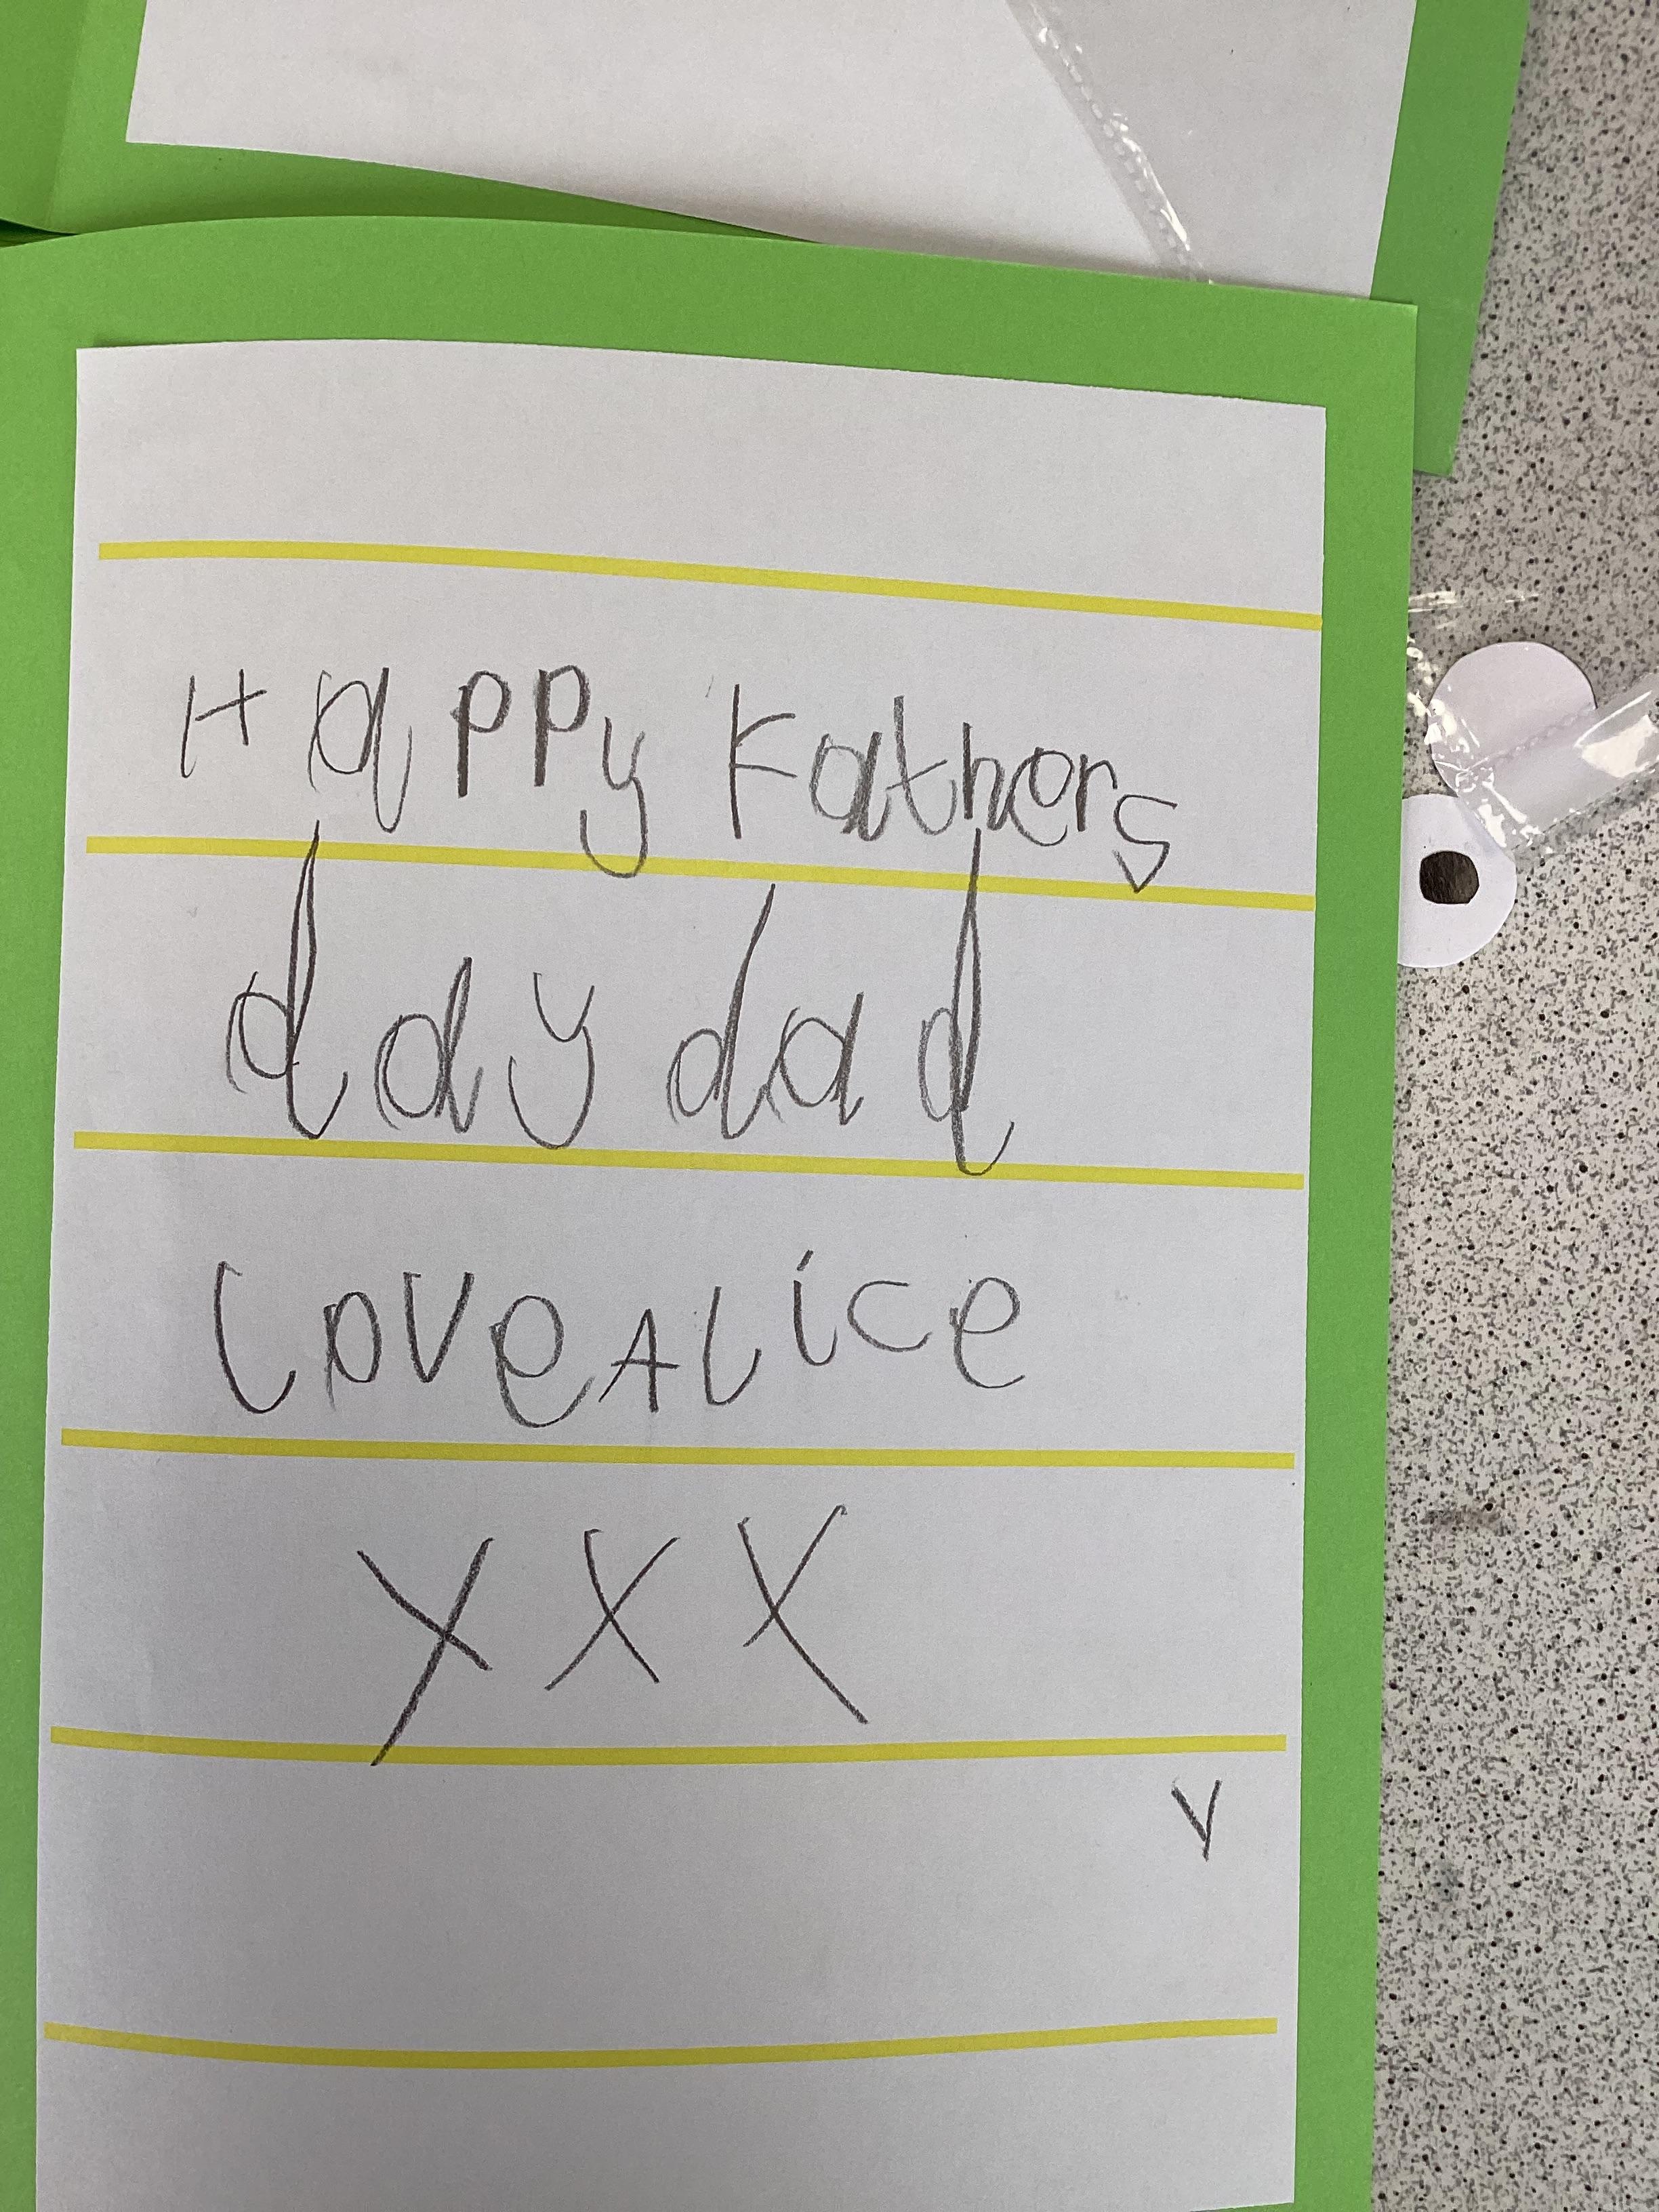 Happy Fathers
day dad
Love Alice
XXX
v